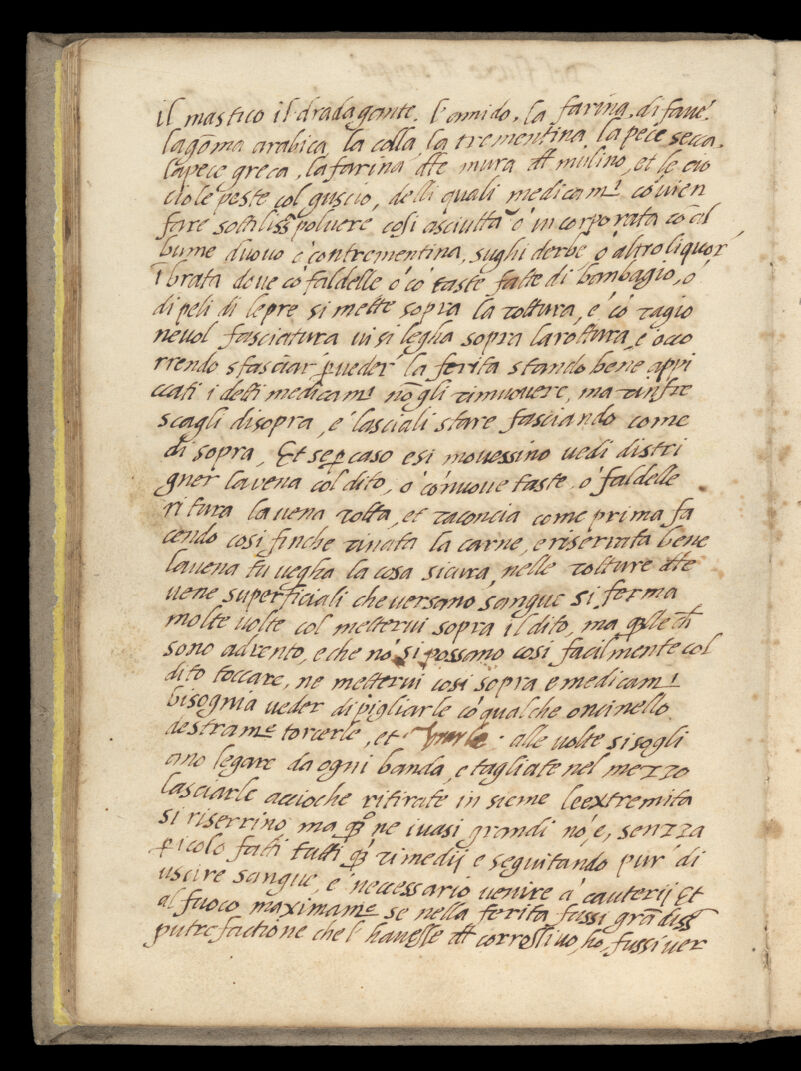 il mastico il dradagante. l'amido, la farina, di faue.
lagōma arabica, la colla, la trementina, la pece secca.
lapece greca, la farina dlle mura dl mulino, et le cio
ciole peste col guscio, delli quali medicamᵗⁱ cōuien
fare sottiliss̄ poluere cosi asciutta o incorporata cō al
bume duouo e contrementina, sughi derbe o altro liquor'
ībrata doue cō faldelle o cō taste fatte di bambagio, o
di peli di lepre si mette sopra la rottura, e cō ragio
neuol fasciatura ui si legha sopra larottura, e occo
rrendo sfasciar' p̲ueder' la ferita stando bene appi
ccati i detti medicamᵗⁱ nō gli rimuouere, ma rinfre
scagli disopra, e lasciali stare fasciando come
di sopra, Et sep̲ caso esi mouessino uedi distri
gner lauena col dito, o cō nuoue taste o faldelle
ritura lauena rotta, et racconcia come prima fa
cendo cosi finche rinata la carne, e riserrata bene
lauena tu uegha la cosa sicura, nelle rotture dlle
uene superficiali che uersano sangue si ferma
molte uolte col metterui sopra il dito, ma q̄lle ch̄
sono adrento, e che nō si possano cosi facilmente col
dito toccare, ne metterui cosi sopra e medicamᵗⁱ
bisognia ueder di pigliarle cō qualche oncinello
destramᵗᵉ torcerle, et alle uolte si sogli
ano legare da ogni banda, e tagliate nel mezzo
lasciarle accioche ritirate in sieme le extremita
si riserrino, ma q̄sᵒ ne i uasi grandi nō, e, senzza
p̲icolo fatti tutti q̄sⁱ rimedij e seguitando pur' di
uscire sangue, e' necessario uenire a' cauterij Et
al fuoco maximamᵗᵉ se nella ferita fussi grādiss̄
putrefactione che l'hauesse dl corrossiuo, ho, fussi uer